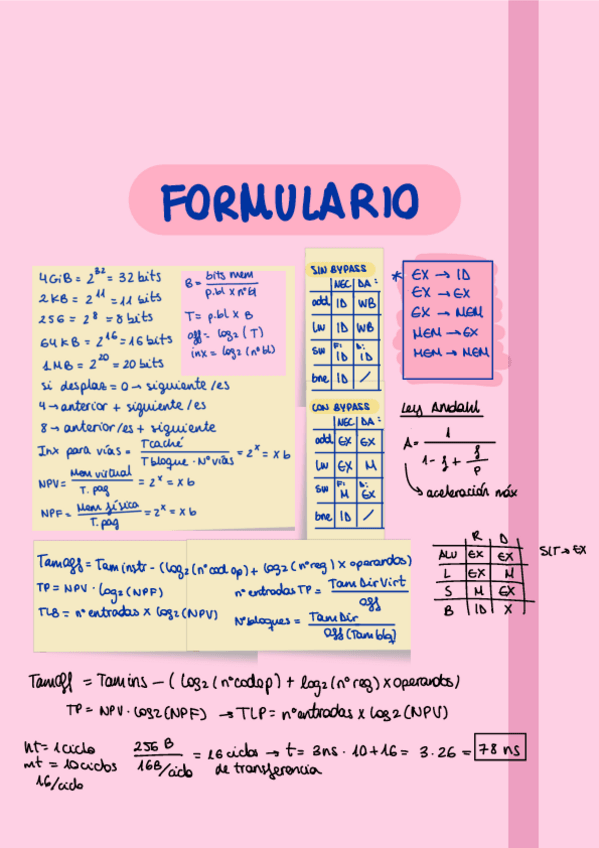 FORMULARIO
4GiB = 2^32 = 32 bits
2KB = 2^11 = 11 bits
256 = 2^8 = 8 bits
64KB = 2^16 = 16 bits
1MB = 2^20 = 20 bits
si desplaz = 0 → siguiente/es
4 → anterior + siguiente/es
8 → anterior/es + siguiente
Inx para vías = Tcaché / Tbloque · Nº vías = 2^x = x b
NPV = Mem virtual / T. pag = 2^x = x b
NPF = Mem física / T. pag = 2^x = x b
B = bits mem / p.bl x nº bl
T = p.bl x B
off = log2 (T)
inx = log2 (nº bl)
SIN BYPASS
NEC DA:
add ID WB
lw ID WB
sw F: ID D: ID
bne ID /
CON BYPASS
NEC DA:
add EX EX
lw EX M
sw F: M D: EX
bne ID /
* EX → ID
EX → EX
EX → MEM
MEM → EX
MEM → MEM
Ley Amdahl
A = 1 / 1 - f + f/p
→ aceleración máx
R D
ALU EX EX
L EX M
S M EX
B ID X
SLT → EX
Tamoff = Tam instr - (log2 (nº cod op) + log2 (nº reg) x operandos)
TP = NPV · log2 (NPF)
TLB = nº entradas x log2 (NPV)
nº entradas TP = Tam Dir Virt / off
Nº bloques = Tam Dir / off (Tam blq)
Tamoff = Tam ins - (log2 (nº cod op) + log2 (nº reg) x operandos)
TP = NPV · log2 (NPF) → TLP = nº entradas x log2 (NPV)
ht = 1 ciclo
mt = 10 ciclos
16/ciclo
256 B / 16B/ciclo = 16 ciclos de transferencia → t = 3ns · 10 + 16 = 3 · 26 = 78 ns